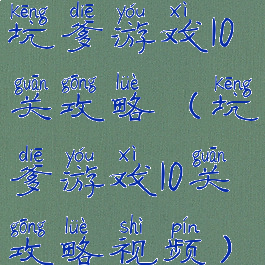 kēng diē yóu xì
坑爹游戏10
guān gōng lüè kēng
关攻略（坑
diē yóu xì guān
爹游戏10关
gōng lüè shì pín
攻略视频）